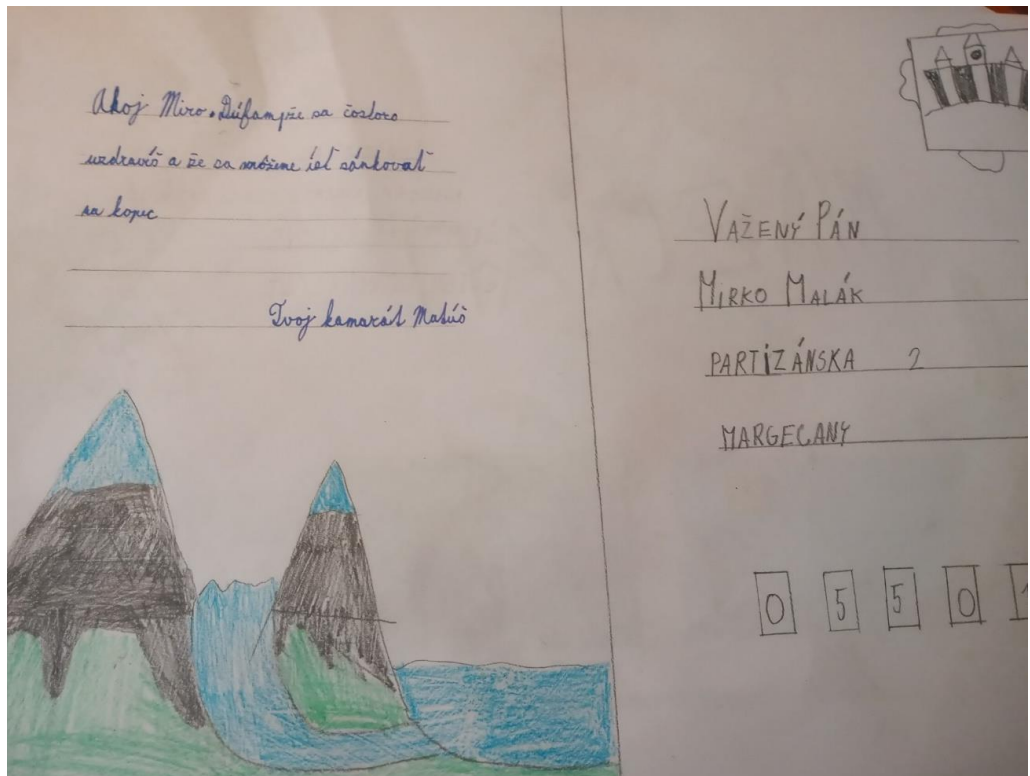 Ahoj Miro. Dúfam, že sa čoskoro
uzdravíš a že sa môžme ísť sánkovať
na kopec
Tvoj kamarát Matúš
VAŽENÝ PÁN
MIRKO MALÁK
PARTIZÁNSKA 2
MARGECANY
0 5 5 0 1